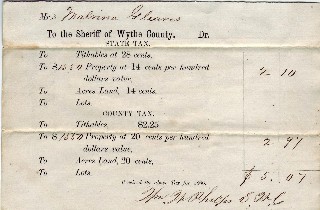 Mrs Malvina Gleaves
To the Sheriff of Wythe County. Dr.
STATE TAX.
To Tithables at 28 cents.
To $1550 Property at 14 cents per hundred
dollars value, 2 10
To Acres Land, 14 cents.
To Lots
COUNTY TAX.
To Tithables, $2.25
To $1550 Property at 20 cents per hundred
dollars value, 2 97
To Acres Land, 20 cents,
To Lots
$ 5.07
Wm. H. Phelps S. W. C